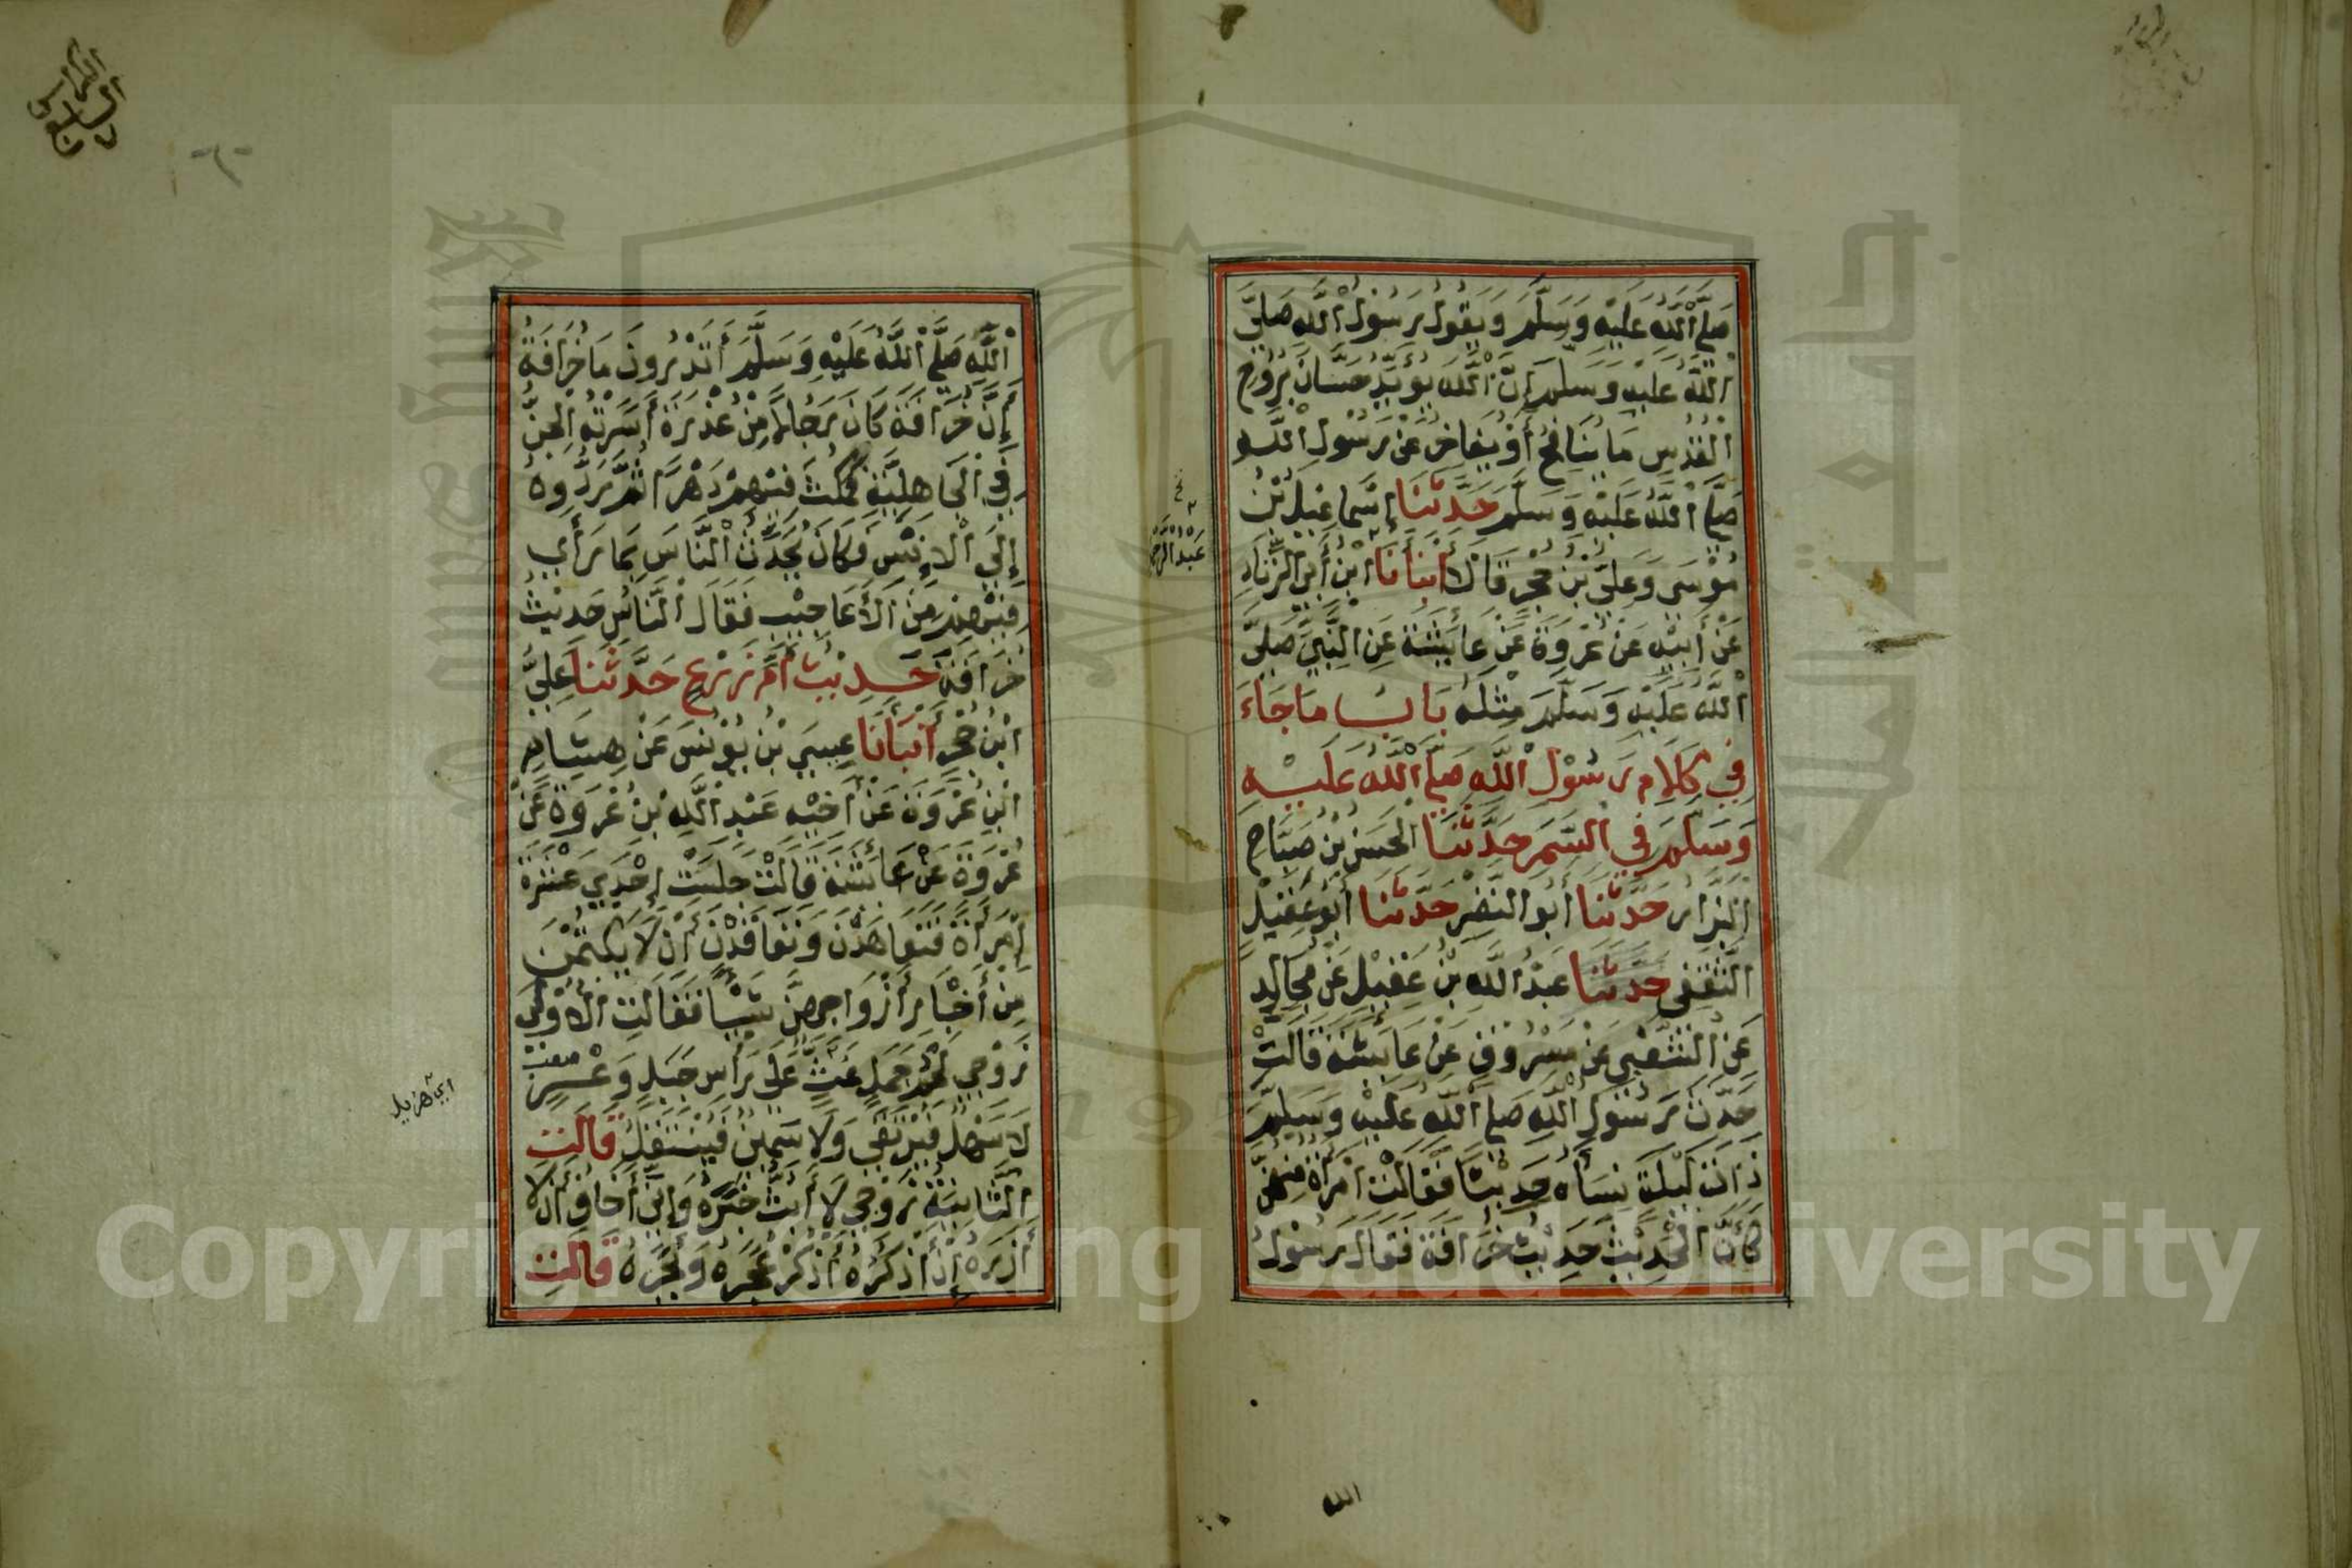 صَلَّى اللَّهُ عَلَيْهِ وَسَلَّمَ وَيَقُولُ رَسُولُ اللَّهِ صَلَّى
اللَّهُ عَلَيْهِ وَسَلَّمَ إِنَّ اللَّهَ يُؤَيِّدُ حَسَّانَ بِرُوحِ
الْقُدُسِ مَا يُنَافِحُ أَوْ يُفَاخِرُ عَنْ رَسُولِ اللَّهِ
صَلَّى اللَّهُ عَلَيْهِ وَسَلَّمَ حَدَّثَنَا إِسْمَاعِيلُ بْنُ
مُوْسَى وَعَلِيُّ بْنُ حُجْرٍ قَالَا أَنْبَأَنَا ابْنُ أَبِي الزِّنَادِ
عَنْ أَبِيْهِ عَنْ عُرْوَةَ عَنْ عَائِشَةَ عَنِ النَّبِيِّ صَلَّى
اللَّهُ عَلَيْهِ وَسَلَّمَ مِثْلَهُ بَابُ مَا جَاءَ
فِي كَلَامِ رَسُوْلِ اللَّهِ صَلَّى اللَّهُ عَلَيْهِ
وَسَلَّمَ فِي السَّمَرِ حَدَّثَنَا الْحَسَنُ بْنُ صَبَّاحٍ
الْبَزَّارُ حَدَّثَنَا أَبُو النَّضْرِ حَدَّثَنَا أَبُو عَقِيْلٍ
الثَّقَفِي حَدَّثَنَا عَبْدُ اللَّهِ بْنُ عَقِيْلٍ عَنْ مُجَالِدٍ
عَنِ الشَّعْبِي عَنْ مَسْرُوقٍ عَنْ عَائِشَةَ قَالَتْ
حَدَّثَ رَسُولُ اللَّهِ صَلَّى اللَّهُ عَلَيْهِ وَسَلَّمَ
ذَاتَ لَيْلَةٍ نِسَاءَهُ حَدِيْثًا فَقَالَتْ امْرَأَةٌ مِنْهُنَّ
كَأَنَّ الْحَدِيْثَ حَدِيْثُ خُرَافَةَ فَقَالَ رَسُوْلُ
الله
اللَّهِ صَلَّى اللَّهُ عَلَيْهِ وَسَلَّمَ أَتَدْرُونَ مَا خُرَافَةُ
إِنَّ خُرَافَةَ كَانَ رَجُلًا مِنْ عُذْرَةَ أَسَرَتْهُ الْجِنُّ
فِي الْجَاهِلِيَّةِ فَمَكَثَ فِيْهِمْ دَهْرًا ثُمَّ رَدُّوهُ
إِلَى الْإِنْسِ فَكَانَ يُحَدِّثُ النَّاسَ بِمَا رَأَى
فِيْهِمْ مِنَ الْأَعَاجِيْبِ فَقَالَ النَّاسُ حَدِيْثُ
خُرَافَةَ حَدِيْثُ أُمِّ زَرْعٍ حَدَّثَنَا عَلِيُّ
ابْنُ حُجْرٍ أَنْبَأَنَا عِيسَى بْنُ يُوْنُسَ عَنْ هِشَامِ
ابْنِ عُرْوَةَ عَنْ أَخِيْهِ عَبْدِ اللَّهِ بْنِ عُرْوَةَ عَنْ
عُرْوَةَ عَنْ عَائِشَةَ قَالَتْ جَلَسَتْ إِحْدَى عَشْرَةَ
امْرَأَةً فَتَعَاهَدْنَ وَتَعَاقَدْنَ أَنْ لَا يَكْتُمْنَ
مِنْ أَخْبَارِ أَزْوَاجِهِنَّ شَيْئًا فَقَالَتِ الْأُوْلَى
زَوْجِي لَحْمُ جَمَلٍ غَثٍّ عَلَى رَأْسِ جَبَلٍ وَعْرٍ
لَا سَهْلٌ فَيُرْتَقَى وَلَا سَمِيْنٌ فَيُنْتَقَلُ قَالَتِ
الثَّانِيَةُ زَوْجِي لَا أَبُثُّ خَبَرَهُ وَإِنِّي أَخَافُ أَنْ لَا
أَذَرَهُ إِنْ أَذْكُرْهُ أَذْكُرْ عُجَرَهُ وَبُجَرَهُ قَالَتِ
أي هزيل
Copyright © King Saud University